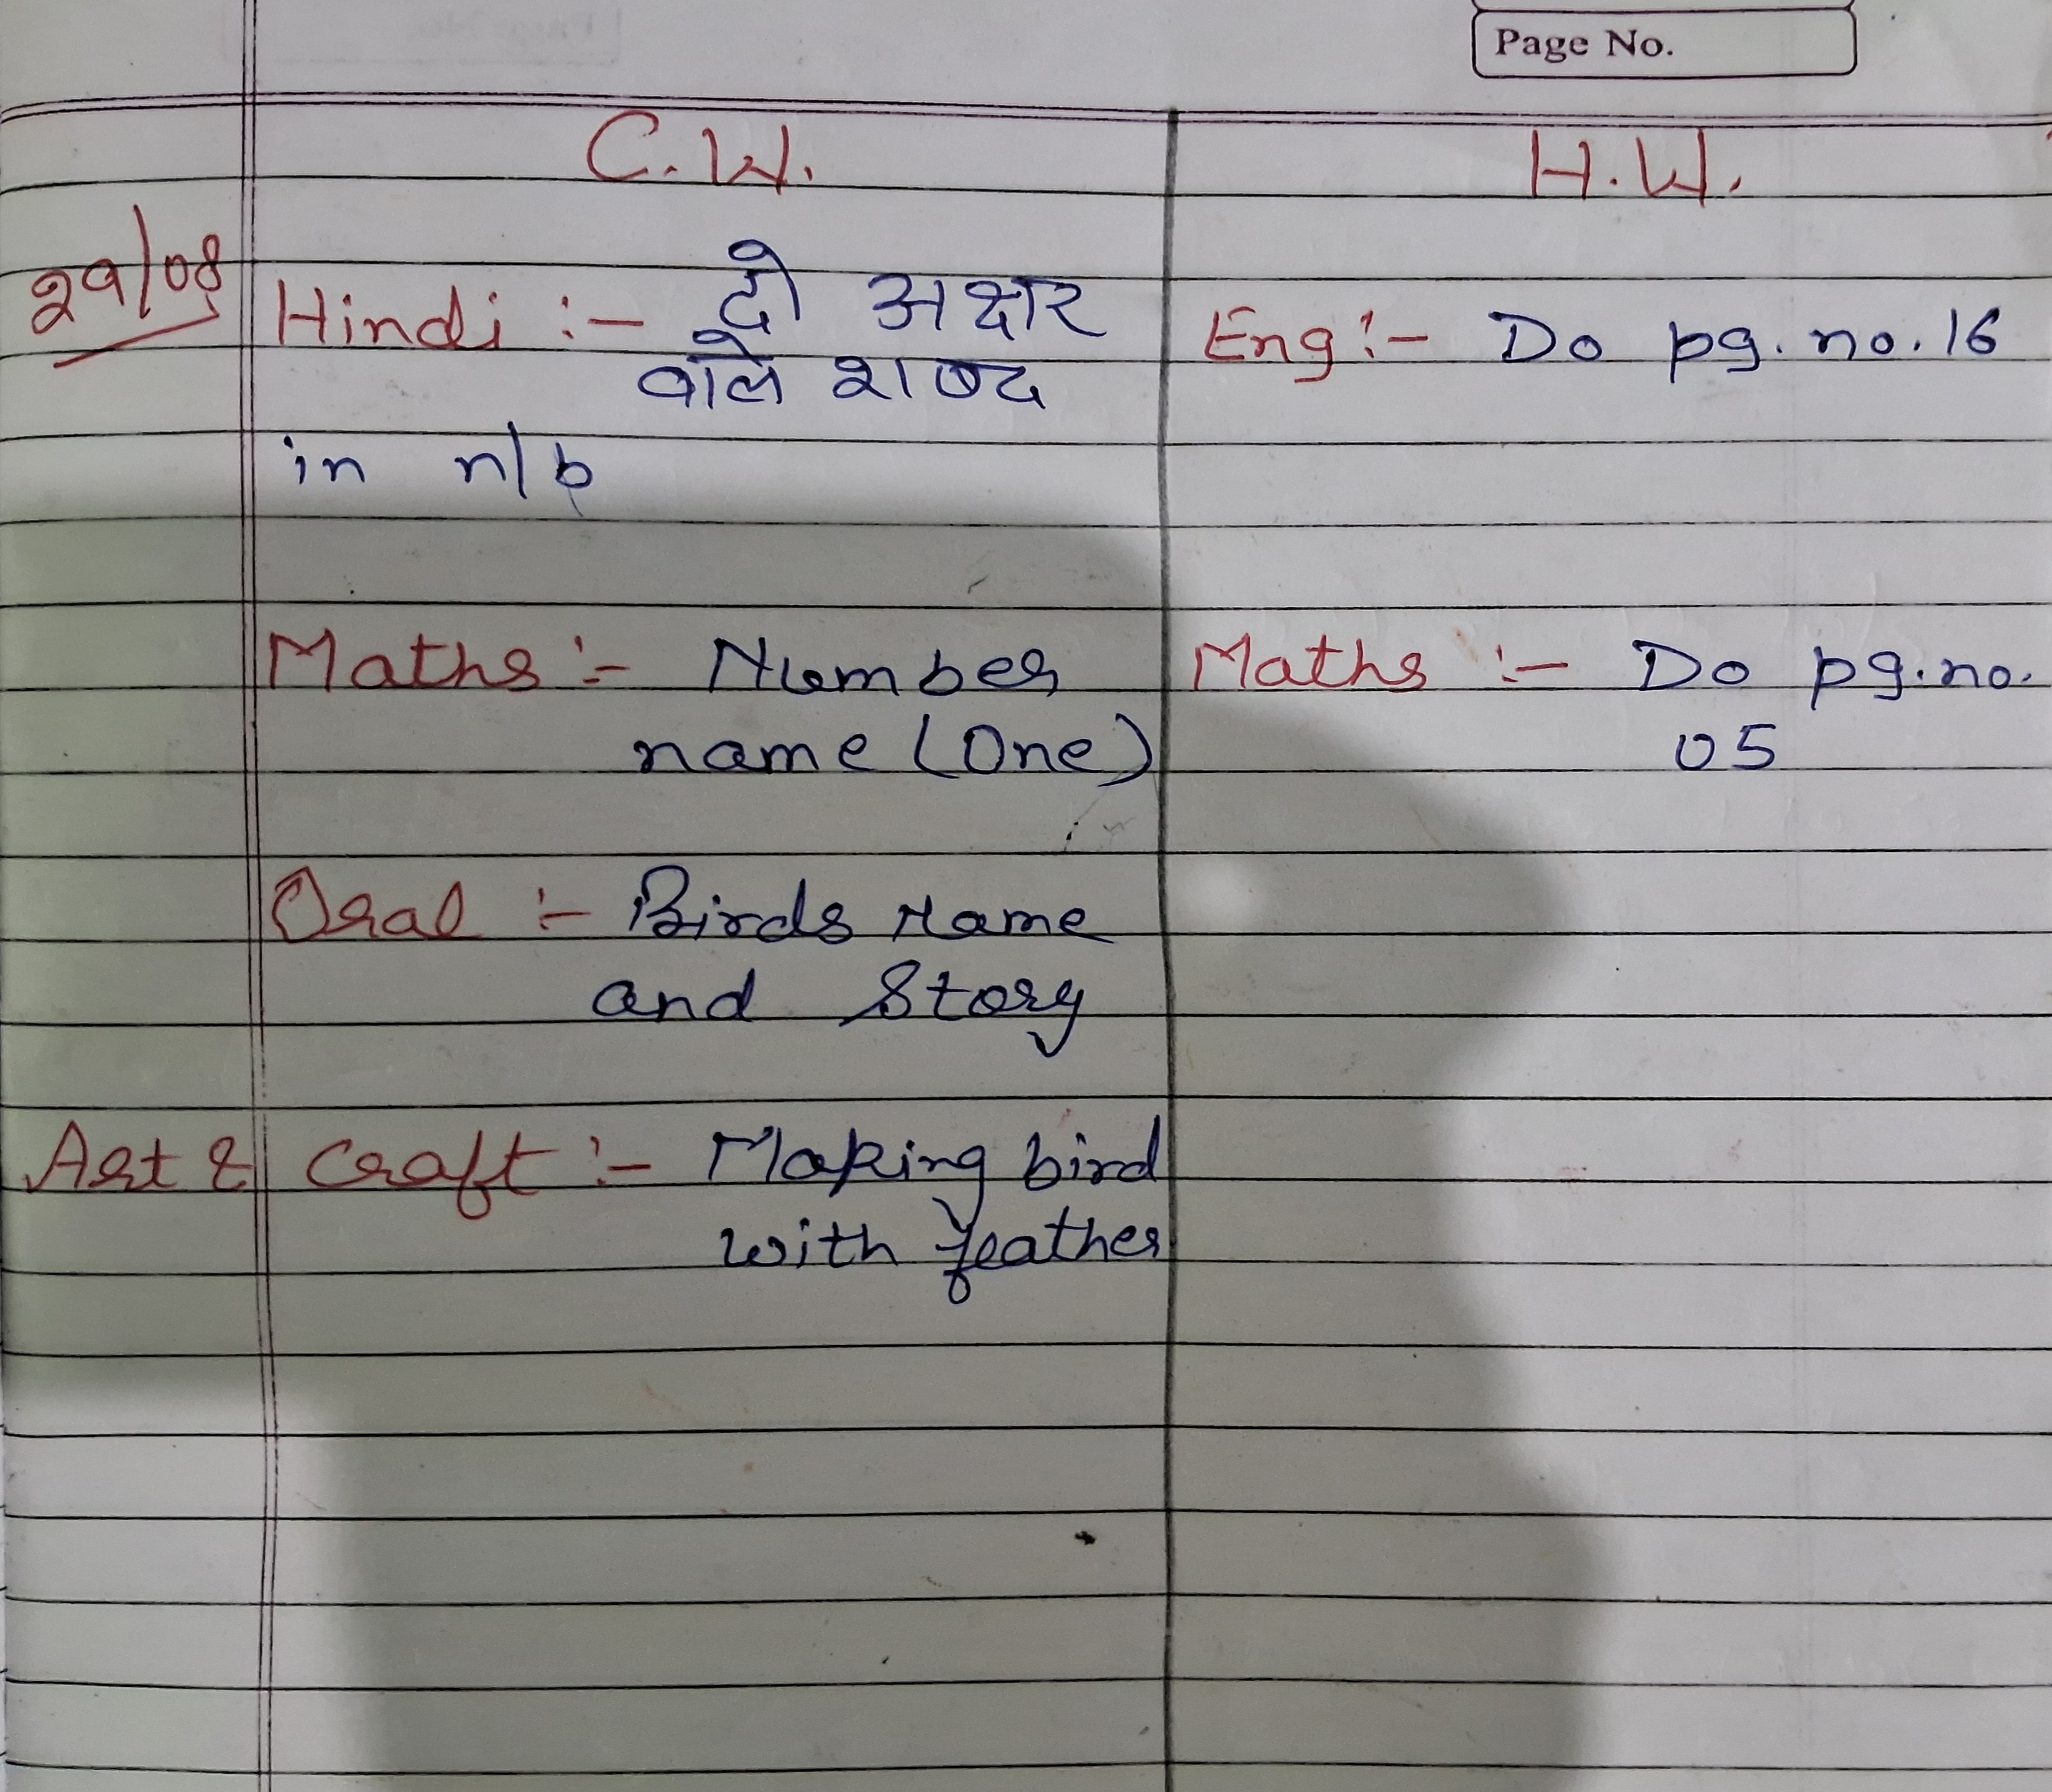 Page No.
C.W. H.W.
29/08 Hindi :- दो अक्षर Eng :- Do pg. no. 16
वाले शब्द
in n/b
Maths :- Number Maths :- Do pg. no.
name (One) 05
Oral :- Birds Name
and Story
Art & Craft :- Making bird
with feather